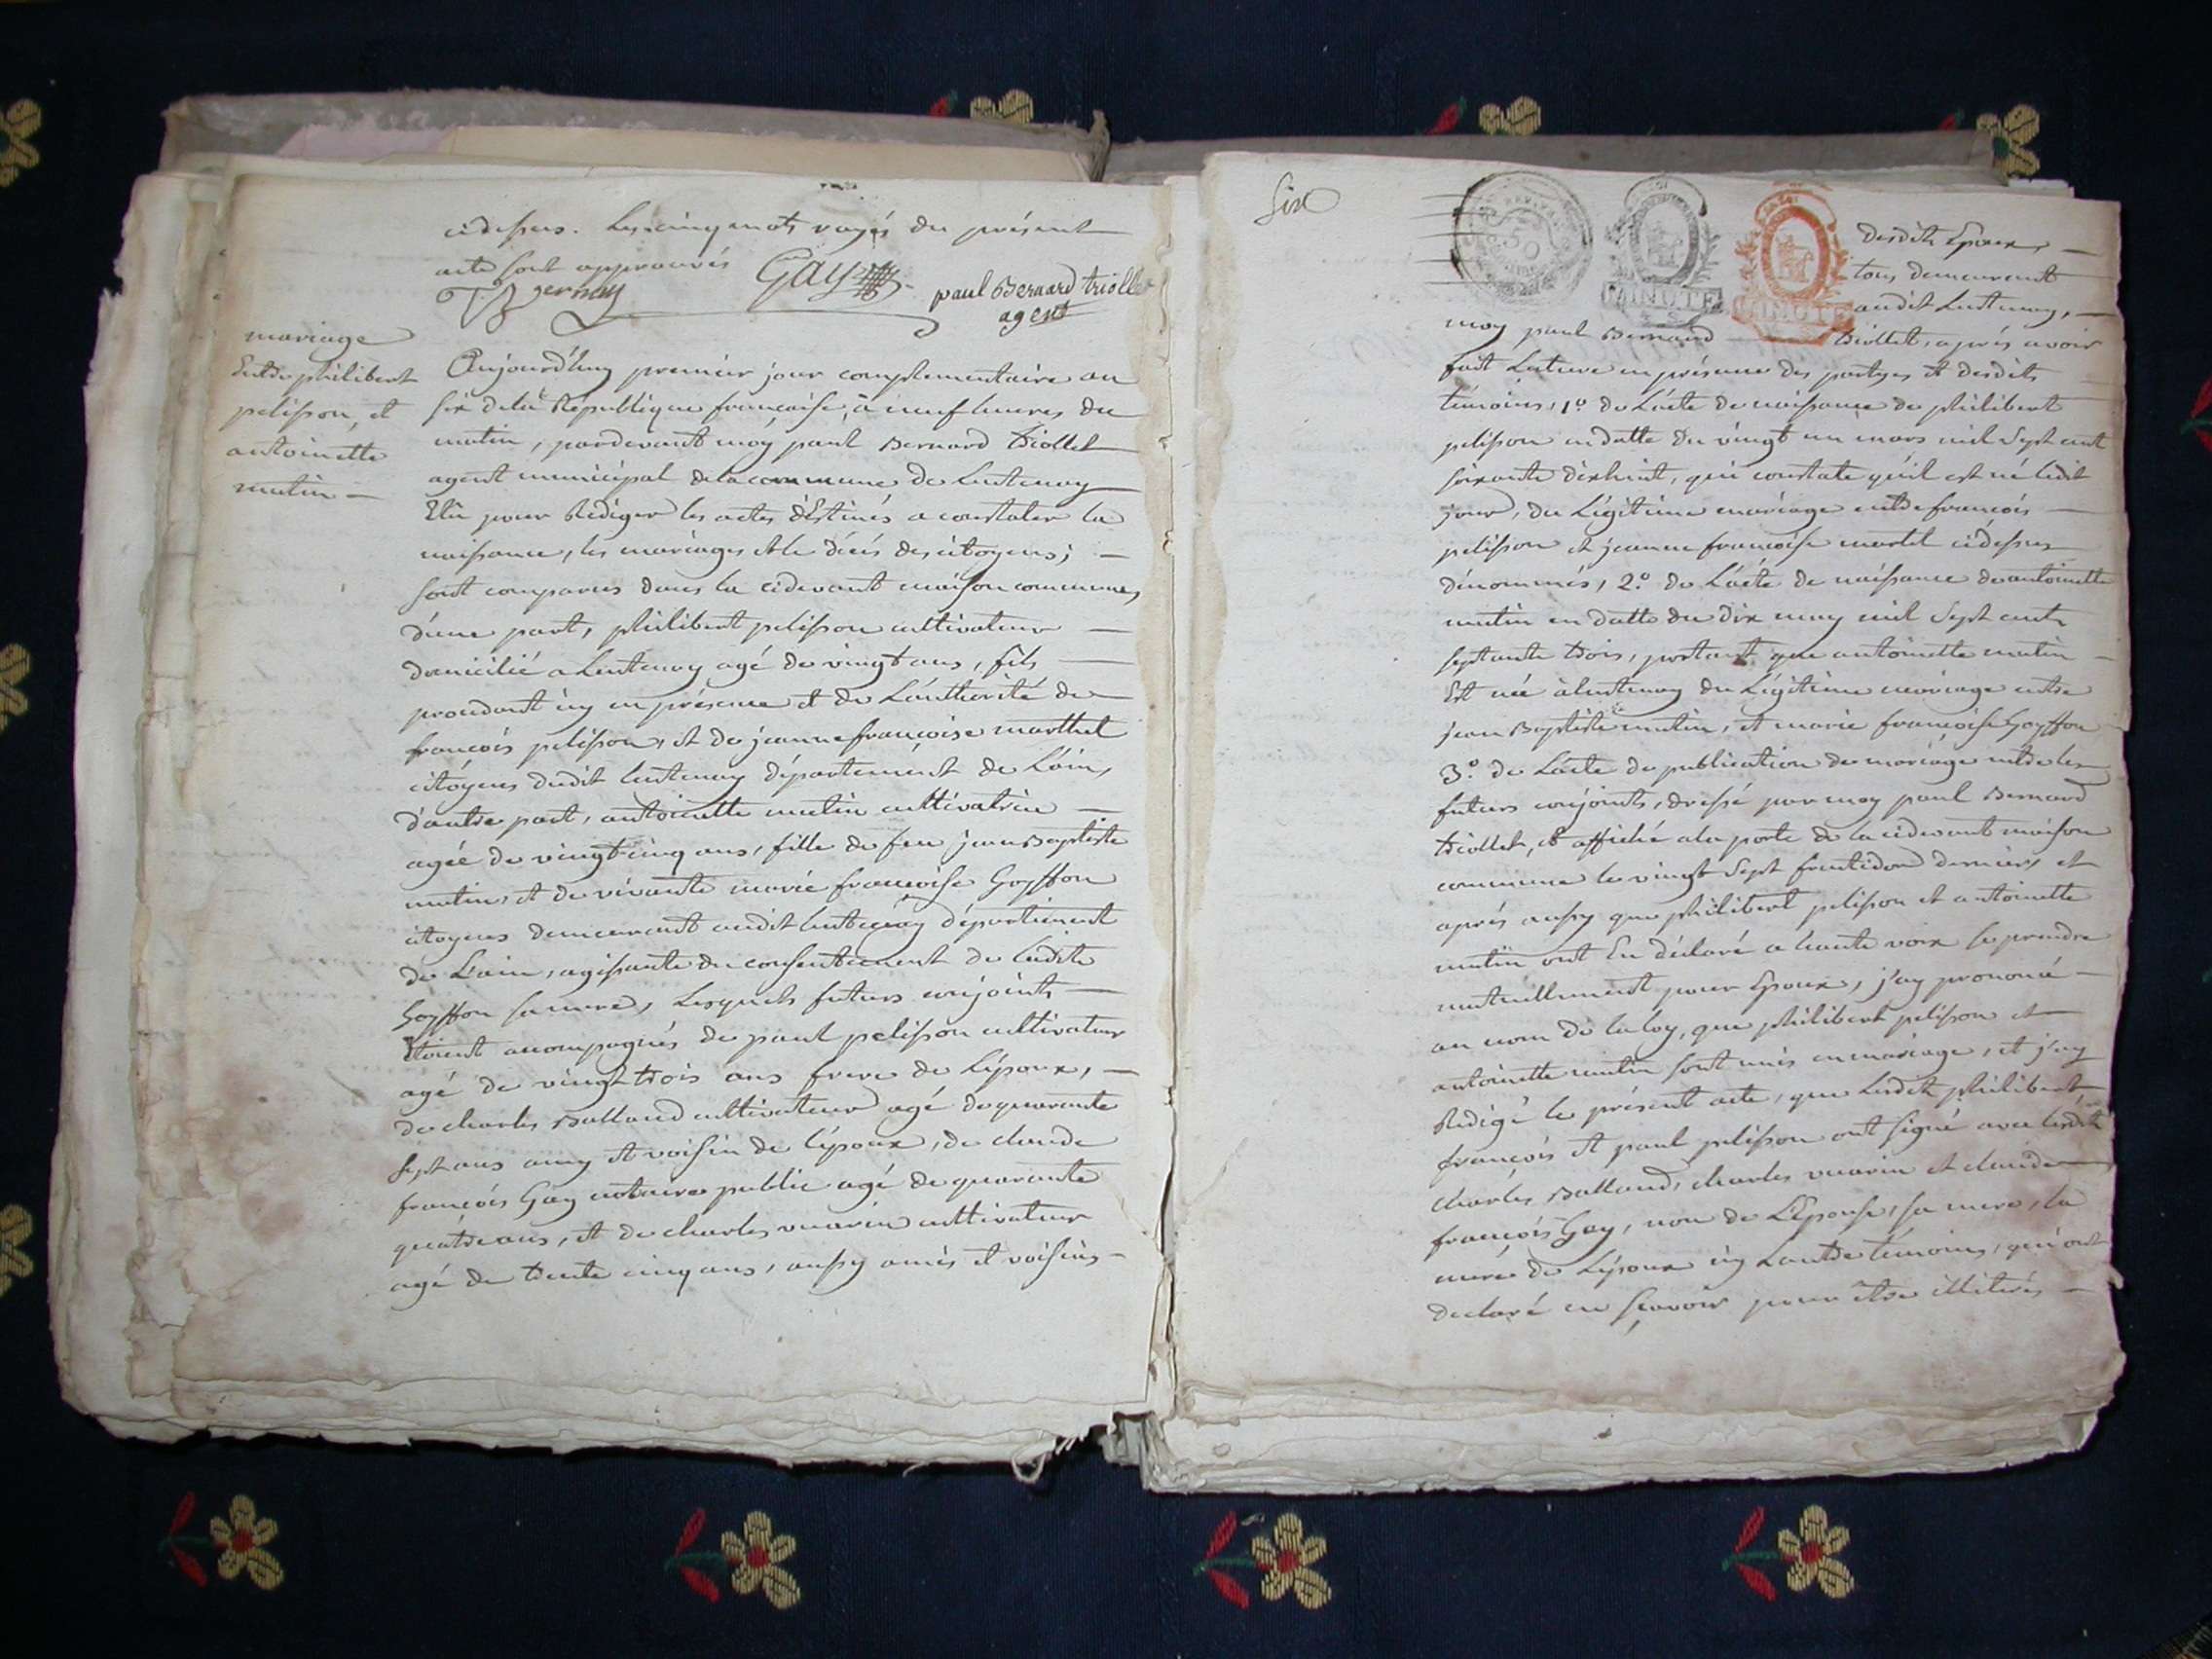 cidessus. Les cinq mots rayés du present
acte sont approuvés
Gay
paul Bernard triollet
agent
mariage
Entre philibert
pelisson, et
antoinette
mutin
Aujourd'huy premier jour complementaire an
six de la République francoise, à neuf heures du
matin, pardevant moy paul Bernard triollet
agent municipal de la commune de Lentenay
Elû pour Rédiger les actes déstinés a constater la
naissance, les mariages et le décés des citoyens;
sont comparus dans la cidevant maison commune,
d'une part, philibert pelisson cultivateur
domicilié a Lentenay agé de vingt ans, fils
procedant icy en présence et de L'authorité de
francois pelisson, et de jeanne françoise marthel
citoyens dudit lentenay département de L'ain,
d'autre part, antoinette mutin cultivatrice
agée de vingt cinq ans, fille de feu jean Baptiste
mutin, et de vivante marie francoise Goyffon
citoyens demeurant audit lentenay département
de L'ain, agissante du consentement de ladite
Goyffon sa mere, Lesquels futurs conjoints
Etoient acompagnés de paul pelisson cultivateur
agé de vingt trois ans frere de L'époux,
de charles Balland cultivateur agé de quarante
sept ans amy et voisin de l'époux, de claude
francois Gay notaire public agé de quarante
quatre ans, et de charles vuarin cultivateur
agé de trente cinq ans, aussy amis et voisins
Six
50
MINUTE
MINUTE
desdits Epoux,
tous demeurant
audit Lentenay,
moy paul Bernard triollet, après avoir
fait Lecture en présence des partyes et desdits
témoins, 1º. de L'acte de naissance de philibert
pelisson en datte du vingt un mars mil sept cent
soixante dixhuit, qui constate qu'il est né ledit
jour, du Légitime mariage entre francois
pelisson et jeanne francoise martel cidessus
dénommés, 2º. de L'acte de naissance de antoinette
mutin en datte du dix may mil sept cent
septante trois, portant que antoinette mutin
Est née à lentenay du Légitime mariage entre
jean Baptiste mutin, et marie francoise Goyffon
3º. de L'acte de publication de mariage entre les
futurs conjoints, dressé par moy paul Bernard
triollet, et affiché a la porte de la cidevant maison
commune le vingt sept fructidor dernier, et
après aussy que philibert pelisson et antoinette
mutin ont Eu déclaré a haute voix se prendre
mutuellement pour Epoux, j'ay prononcé
au nom de la loy, que philibert pelisson et
antoinette mutin sont unis en mariage, et j'ay
Rédigé le présent acte, que lesdits philibert
francois et paul pelisson ont signé avec lesdits
charles Balland, charles vuarin et claude
francois Gay, non de L'épouse, sa mere, la
mere de L'époux
declaré ne scavoir pour être illitérés